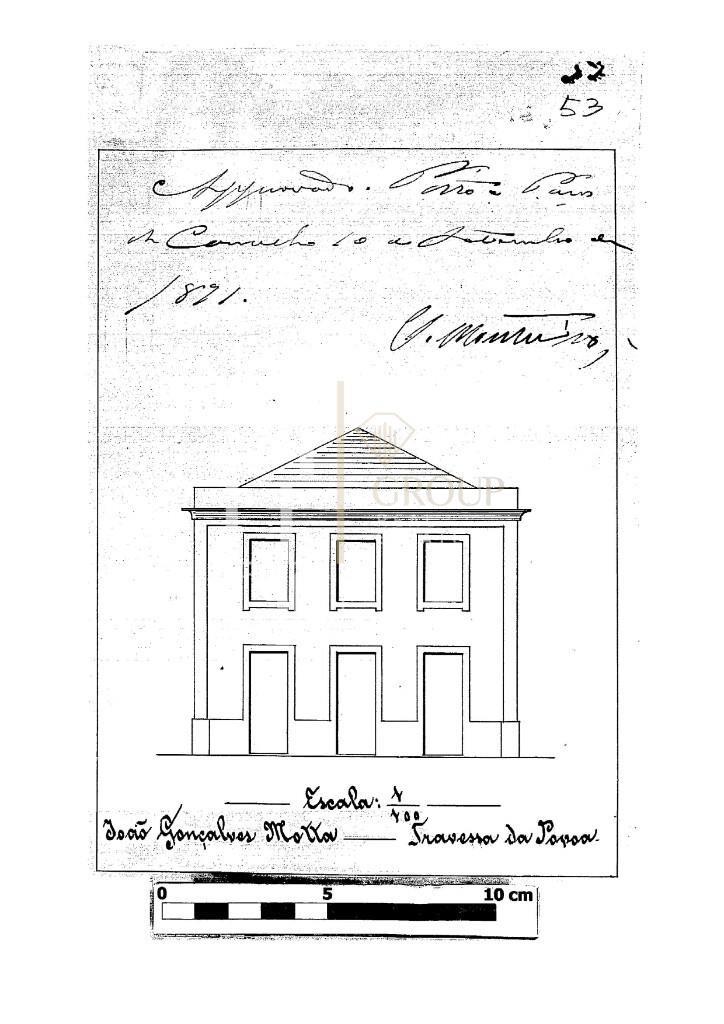 53
Approvado. Porto e Paços
do Concelho 10 de Setembro de
1891.
Monteiro
GROUP
Escala: 1/100
João Gonçalves Motta — Travessa da Povoa
0 5 10 cm